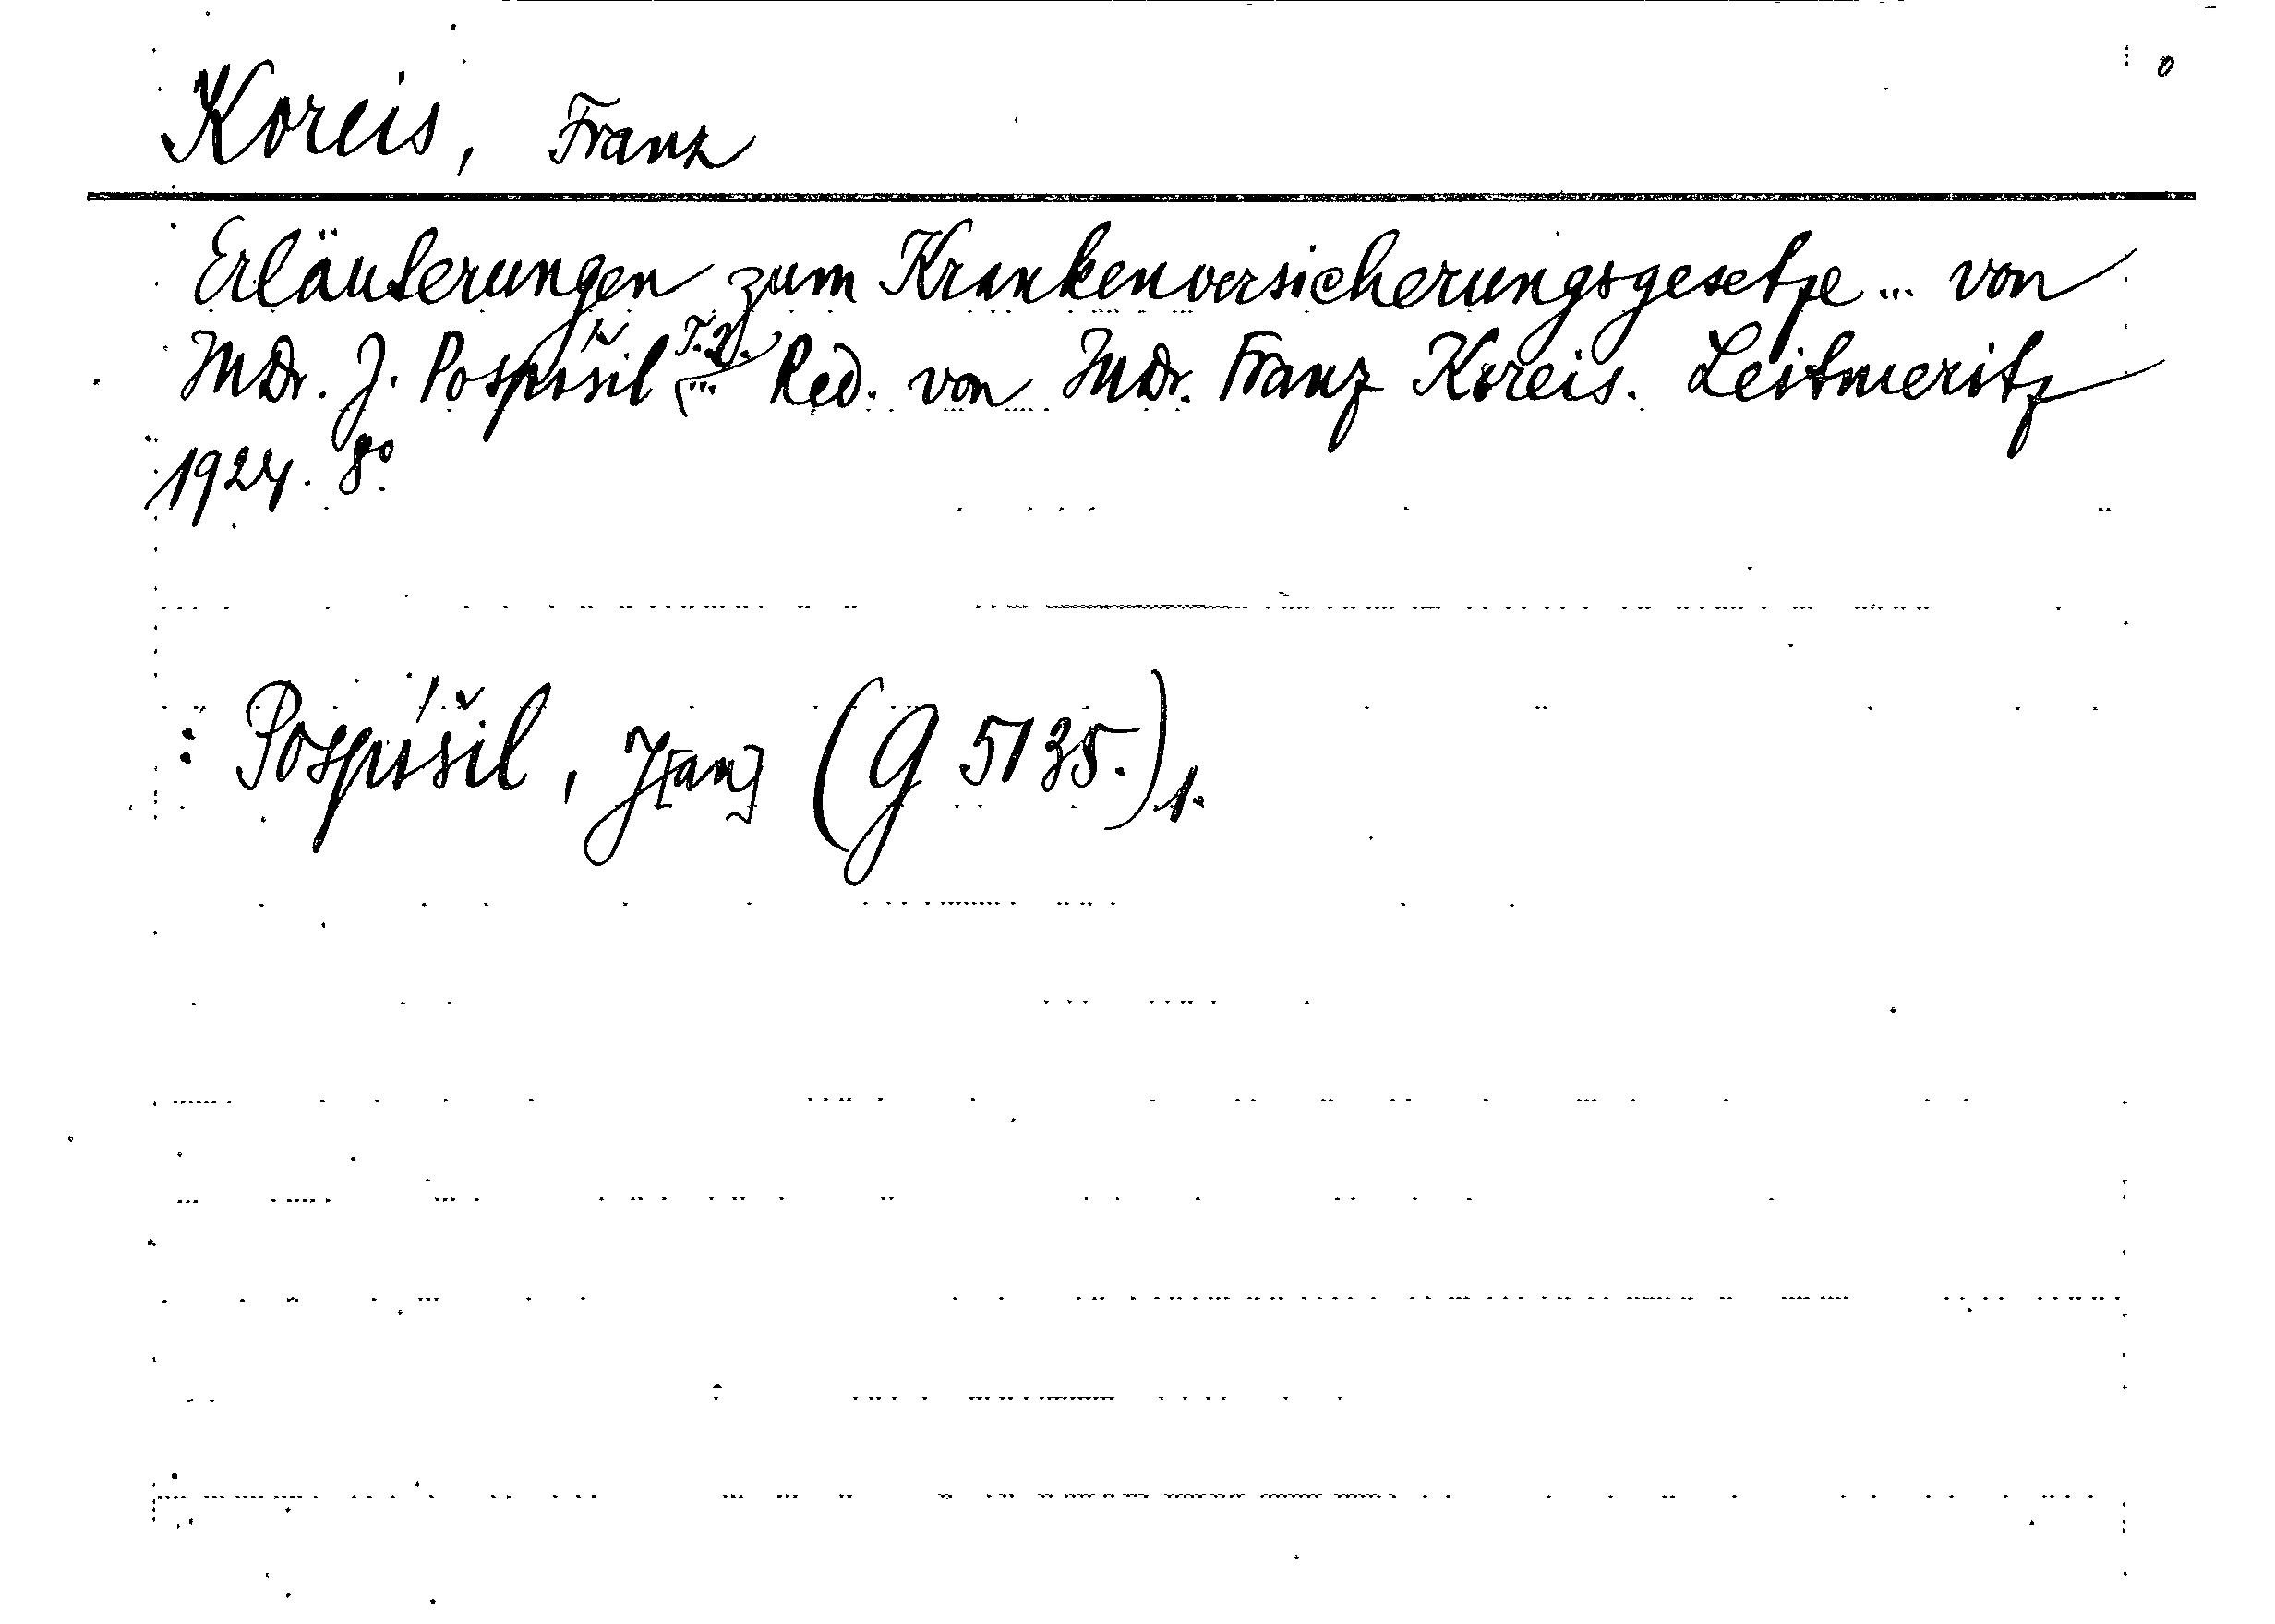 Koreis, Franz
Erläuterungen zum Krankenversicherungsgesetze ... von
MDr. J. Pospíšil T. 2. ... Red. von MDr. Franz Koreis. Leitmeritz
1924. 8°.
: Pospíšil, J[an] (G 5135.) 1.